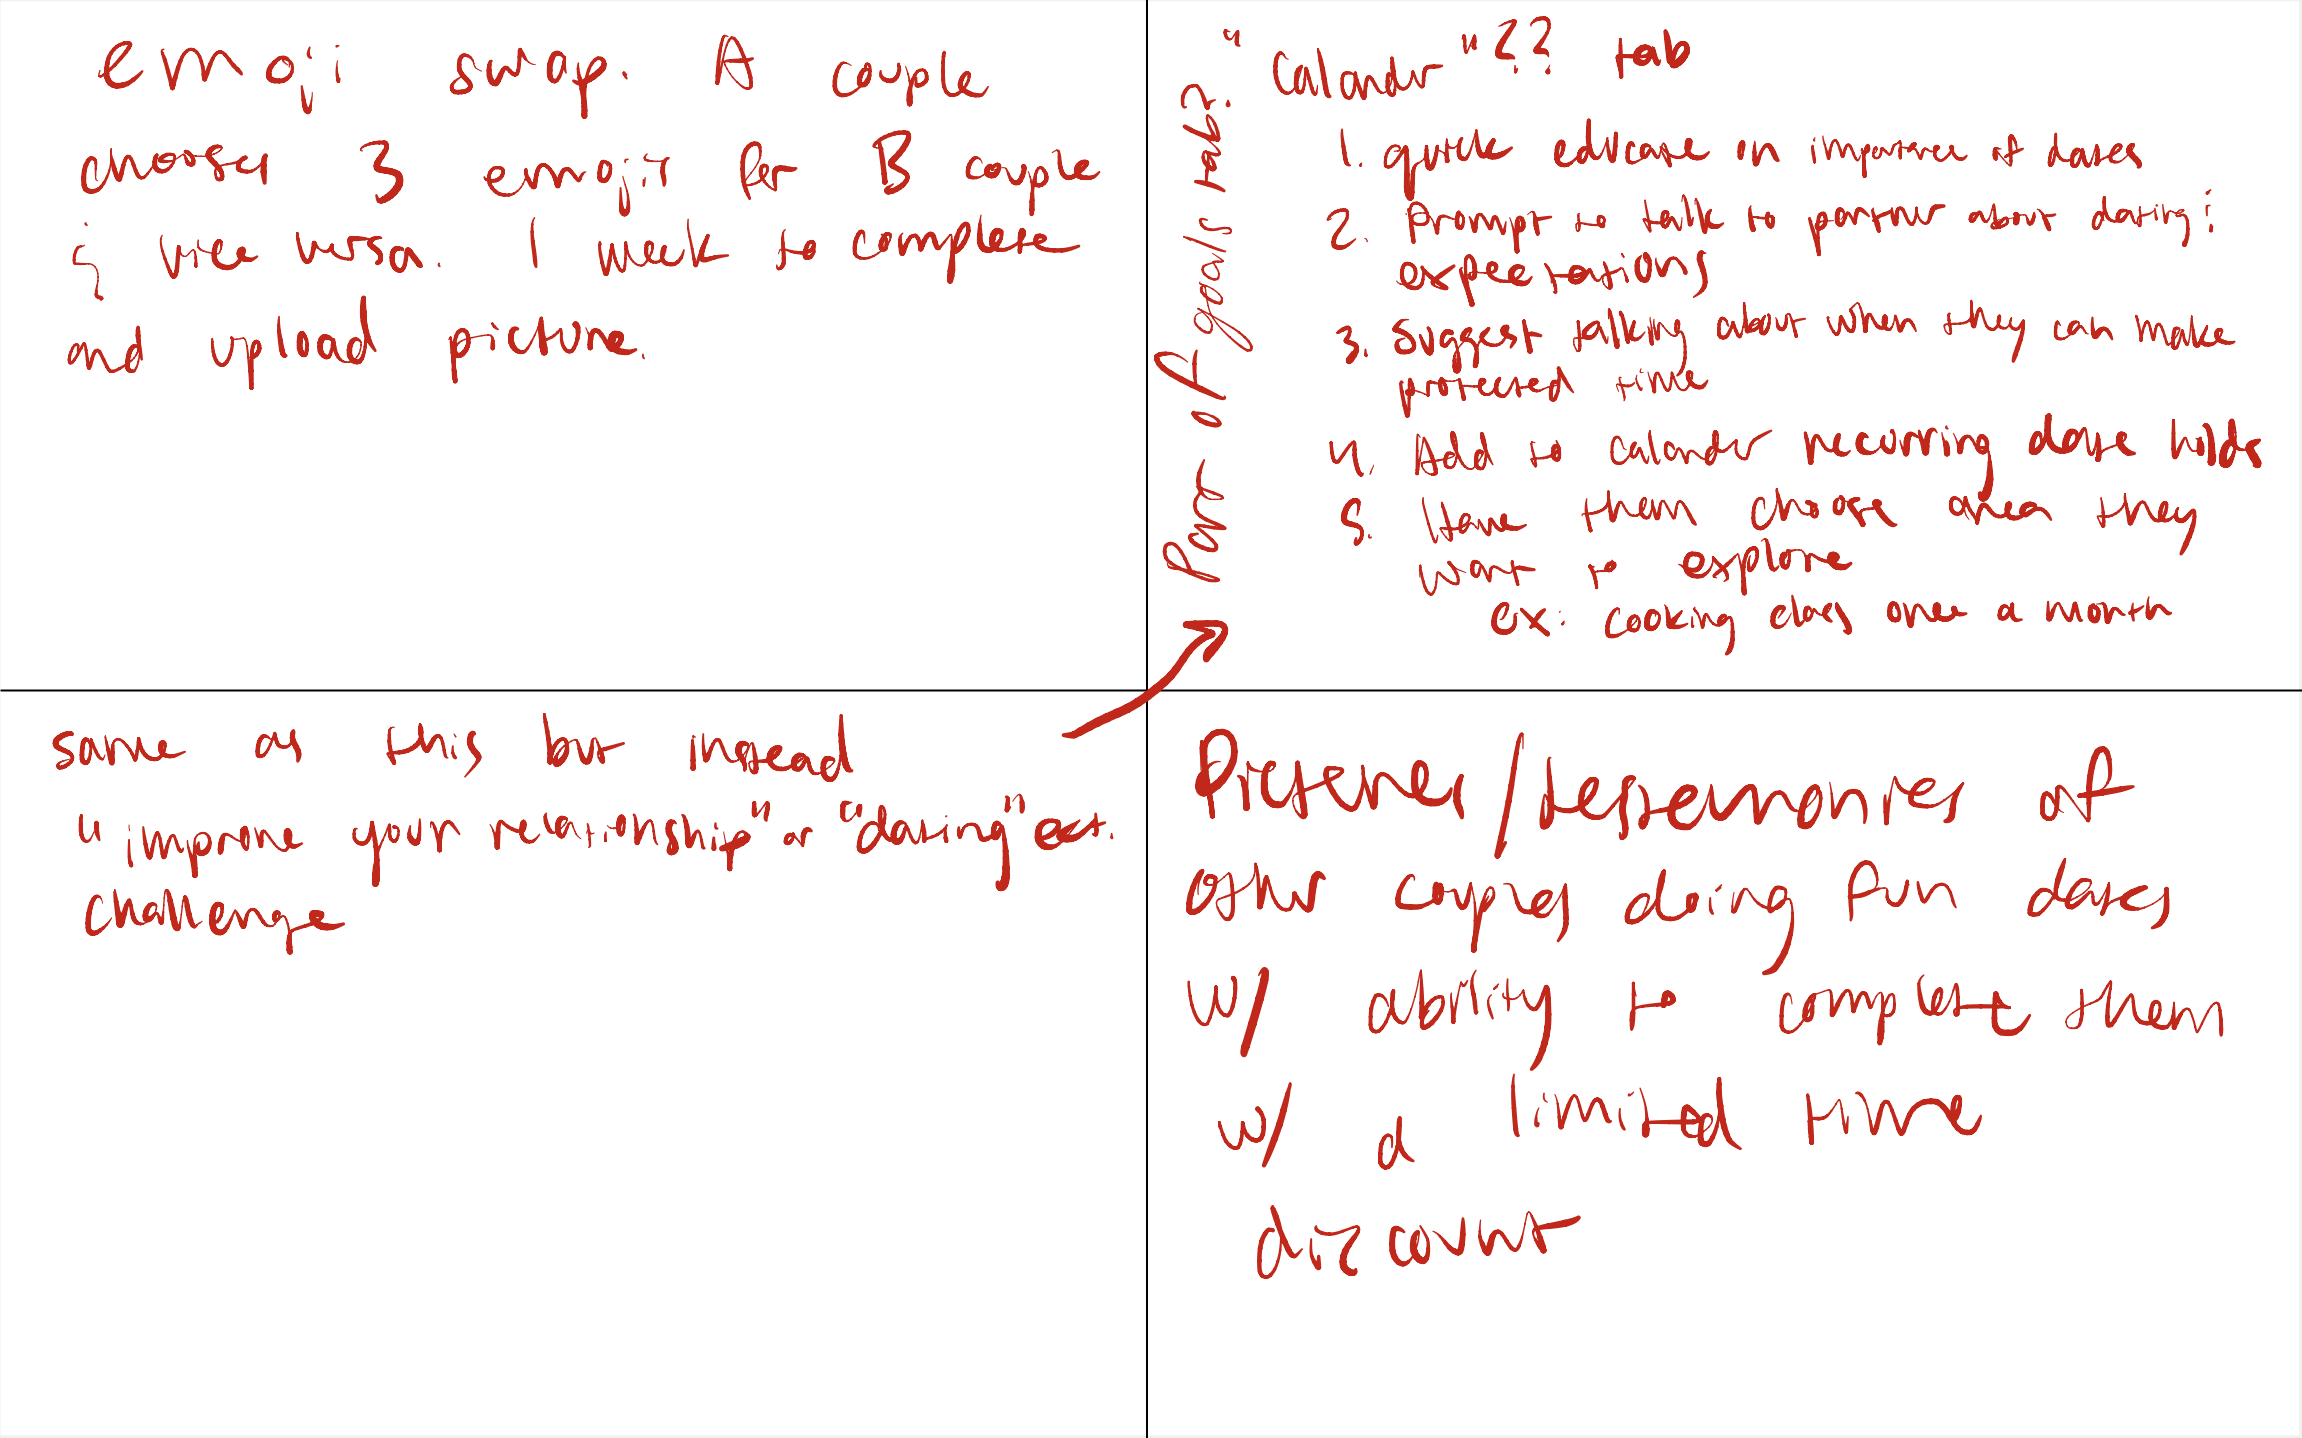 emoji swap. A couple
chooses 3 emojis for B couple
& vice versa. 1 week to complete
and upload picture.
Part of goals tab?
"Calander"?? tab
1. quick educate on importance of dates
2. Prompt to talk to partner about dating &
expectations
3. Suggest talking about when they can make
protected time
4. Add to calander recurring date holds
5. Have them choose area they
want to explore
ex: cooking class once a month
same as this but instead
"improve your relationship" or "dating" ect.
challenge
Pictures/testemonies of
other couples doing fun dates
w/ ability to complete them
w/ a limited time
discount